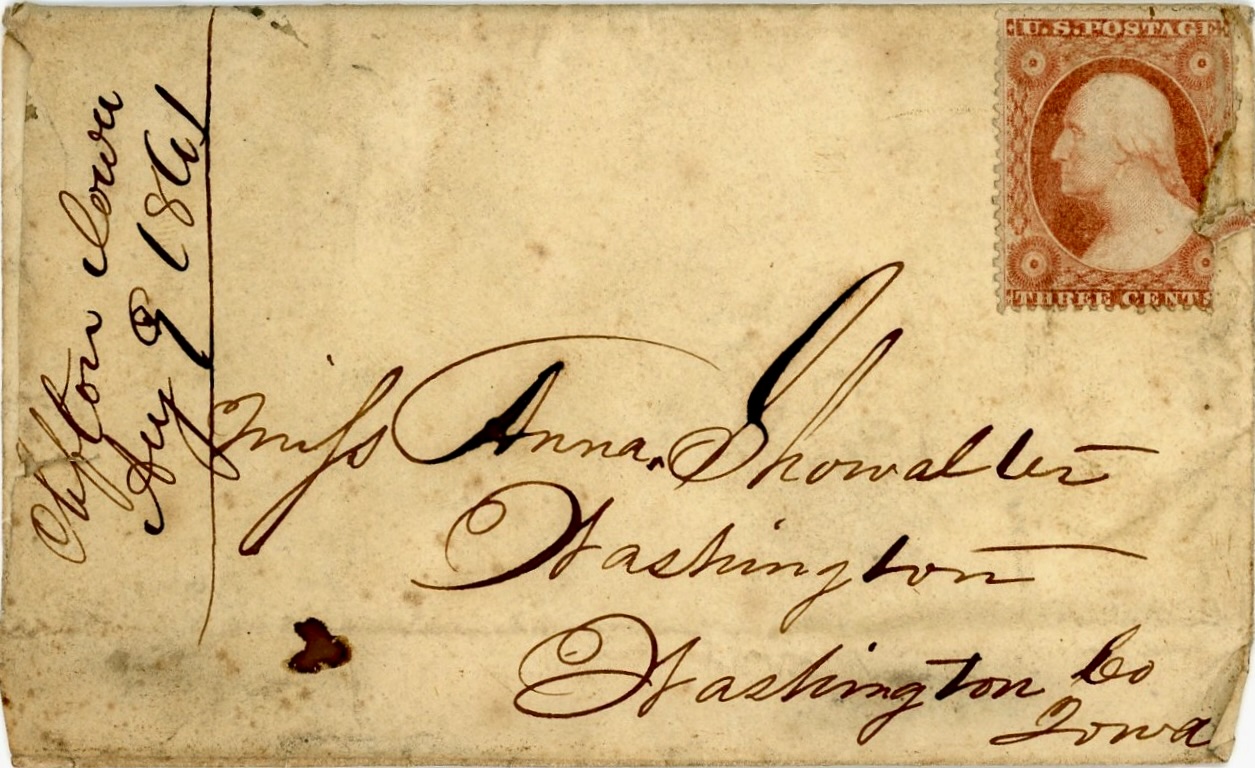 Clifton Iowa
Aug 9 1861
U.S. POSTAGE
THREE CENTS
Miss Anna Showalter
Washington
Washington Co
Iowa